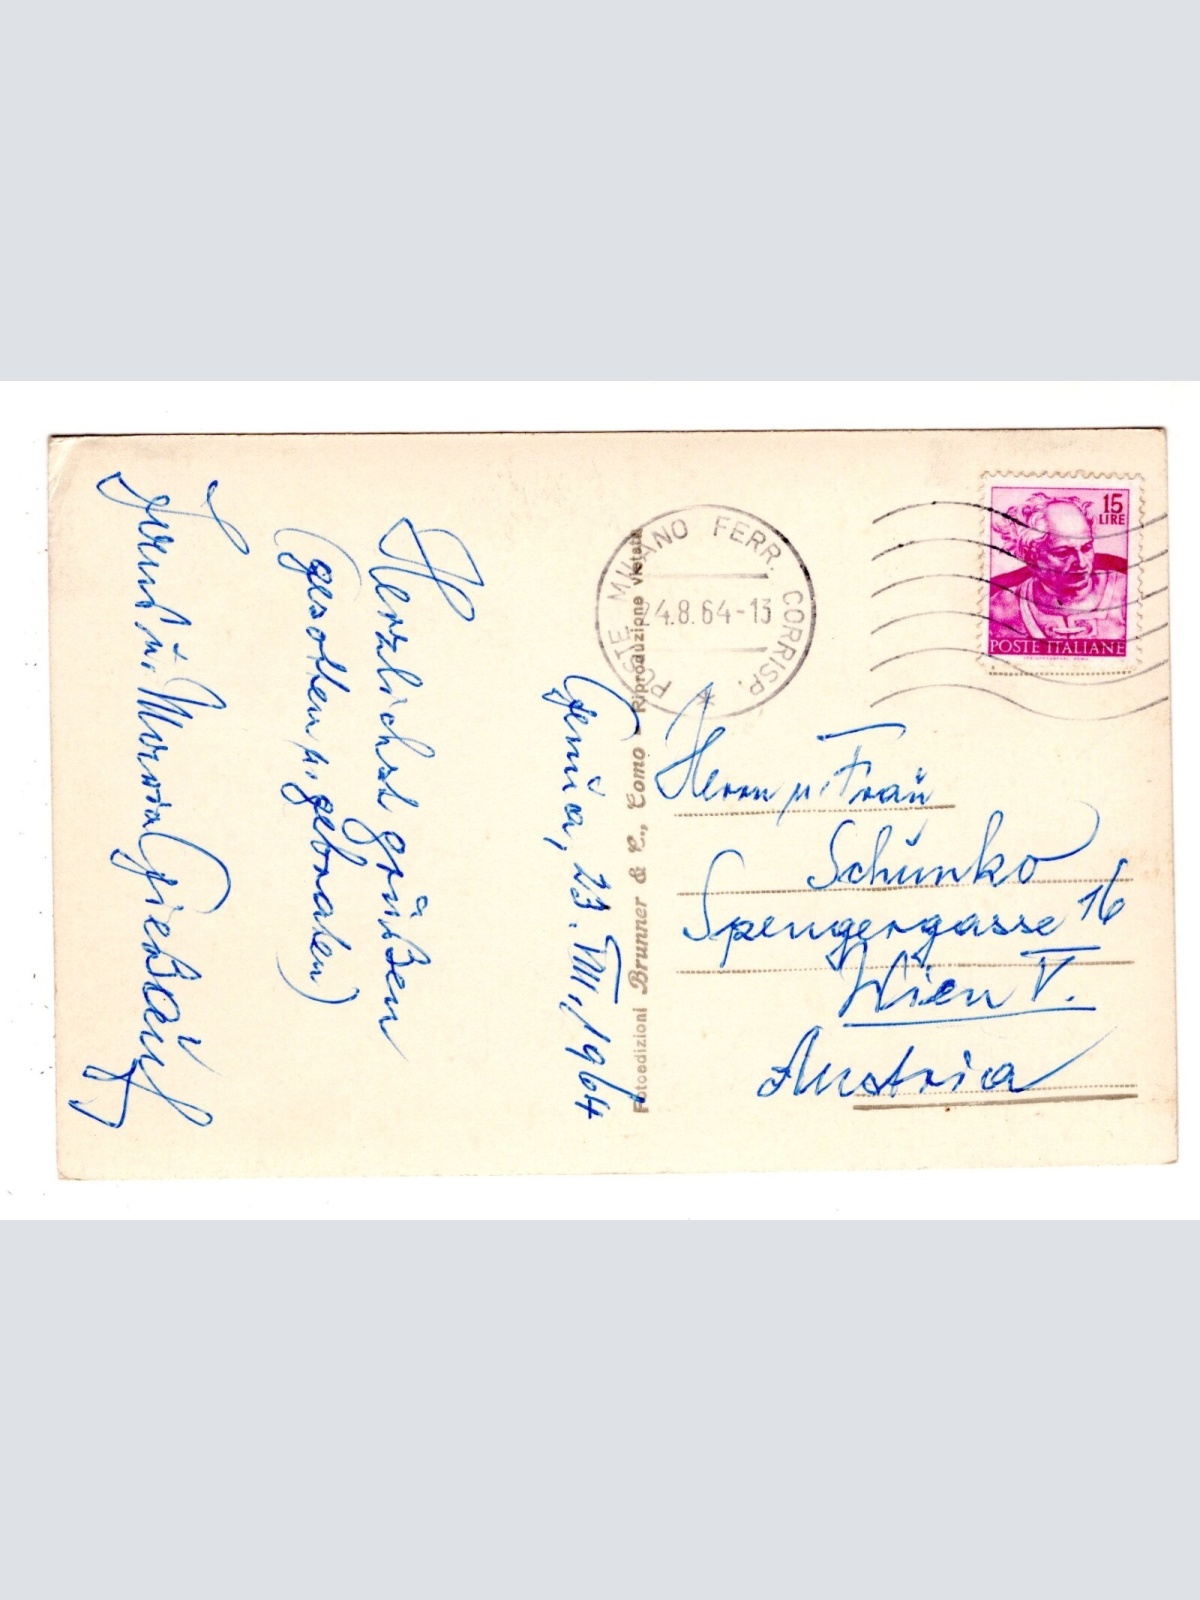 Genua, 23. VIII. 1964
Herzlichst grüßen
(gesotten u. gebraten)
u. Maria
POSTE MILANO FERR. CORRISP.
24.8.64-13
15
LIRE
POSTE ITALIANE
Fotoedizioni Brunner & C., Como - Riproduzione vietata
Herrn u. Frau
Schunko
Spengergasse 16
Wien V.
Austria